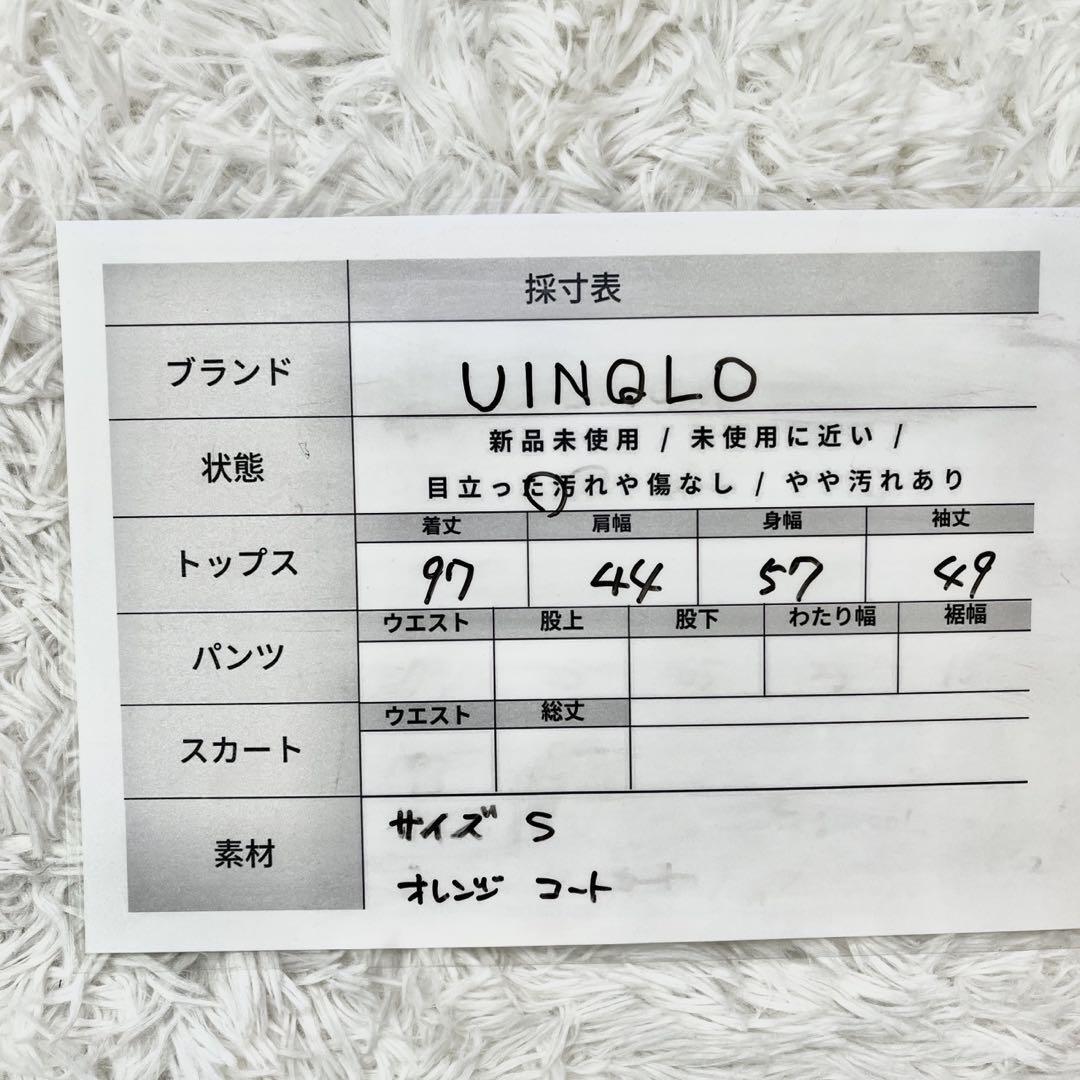 採寸表
ブランド UINQLO
状態 新品未使用 / 未使用に近い /
目立った汚れや傷なし / やや汚れあり
着丈 肩幅 身幅 袖丈
トップス 97 44 57 49
ウエスト 股上 股下 わたり幅 裾幅
パンツ
ウエスト 総丈
スカート
サイズ S
素材
オレンジ コート